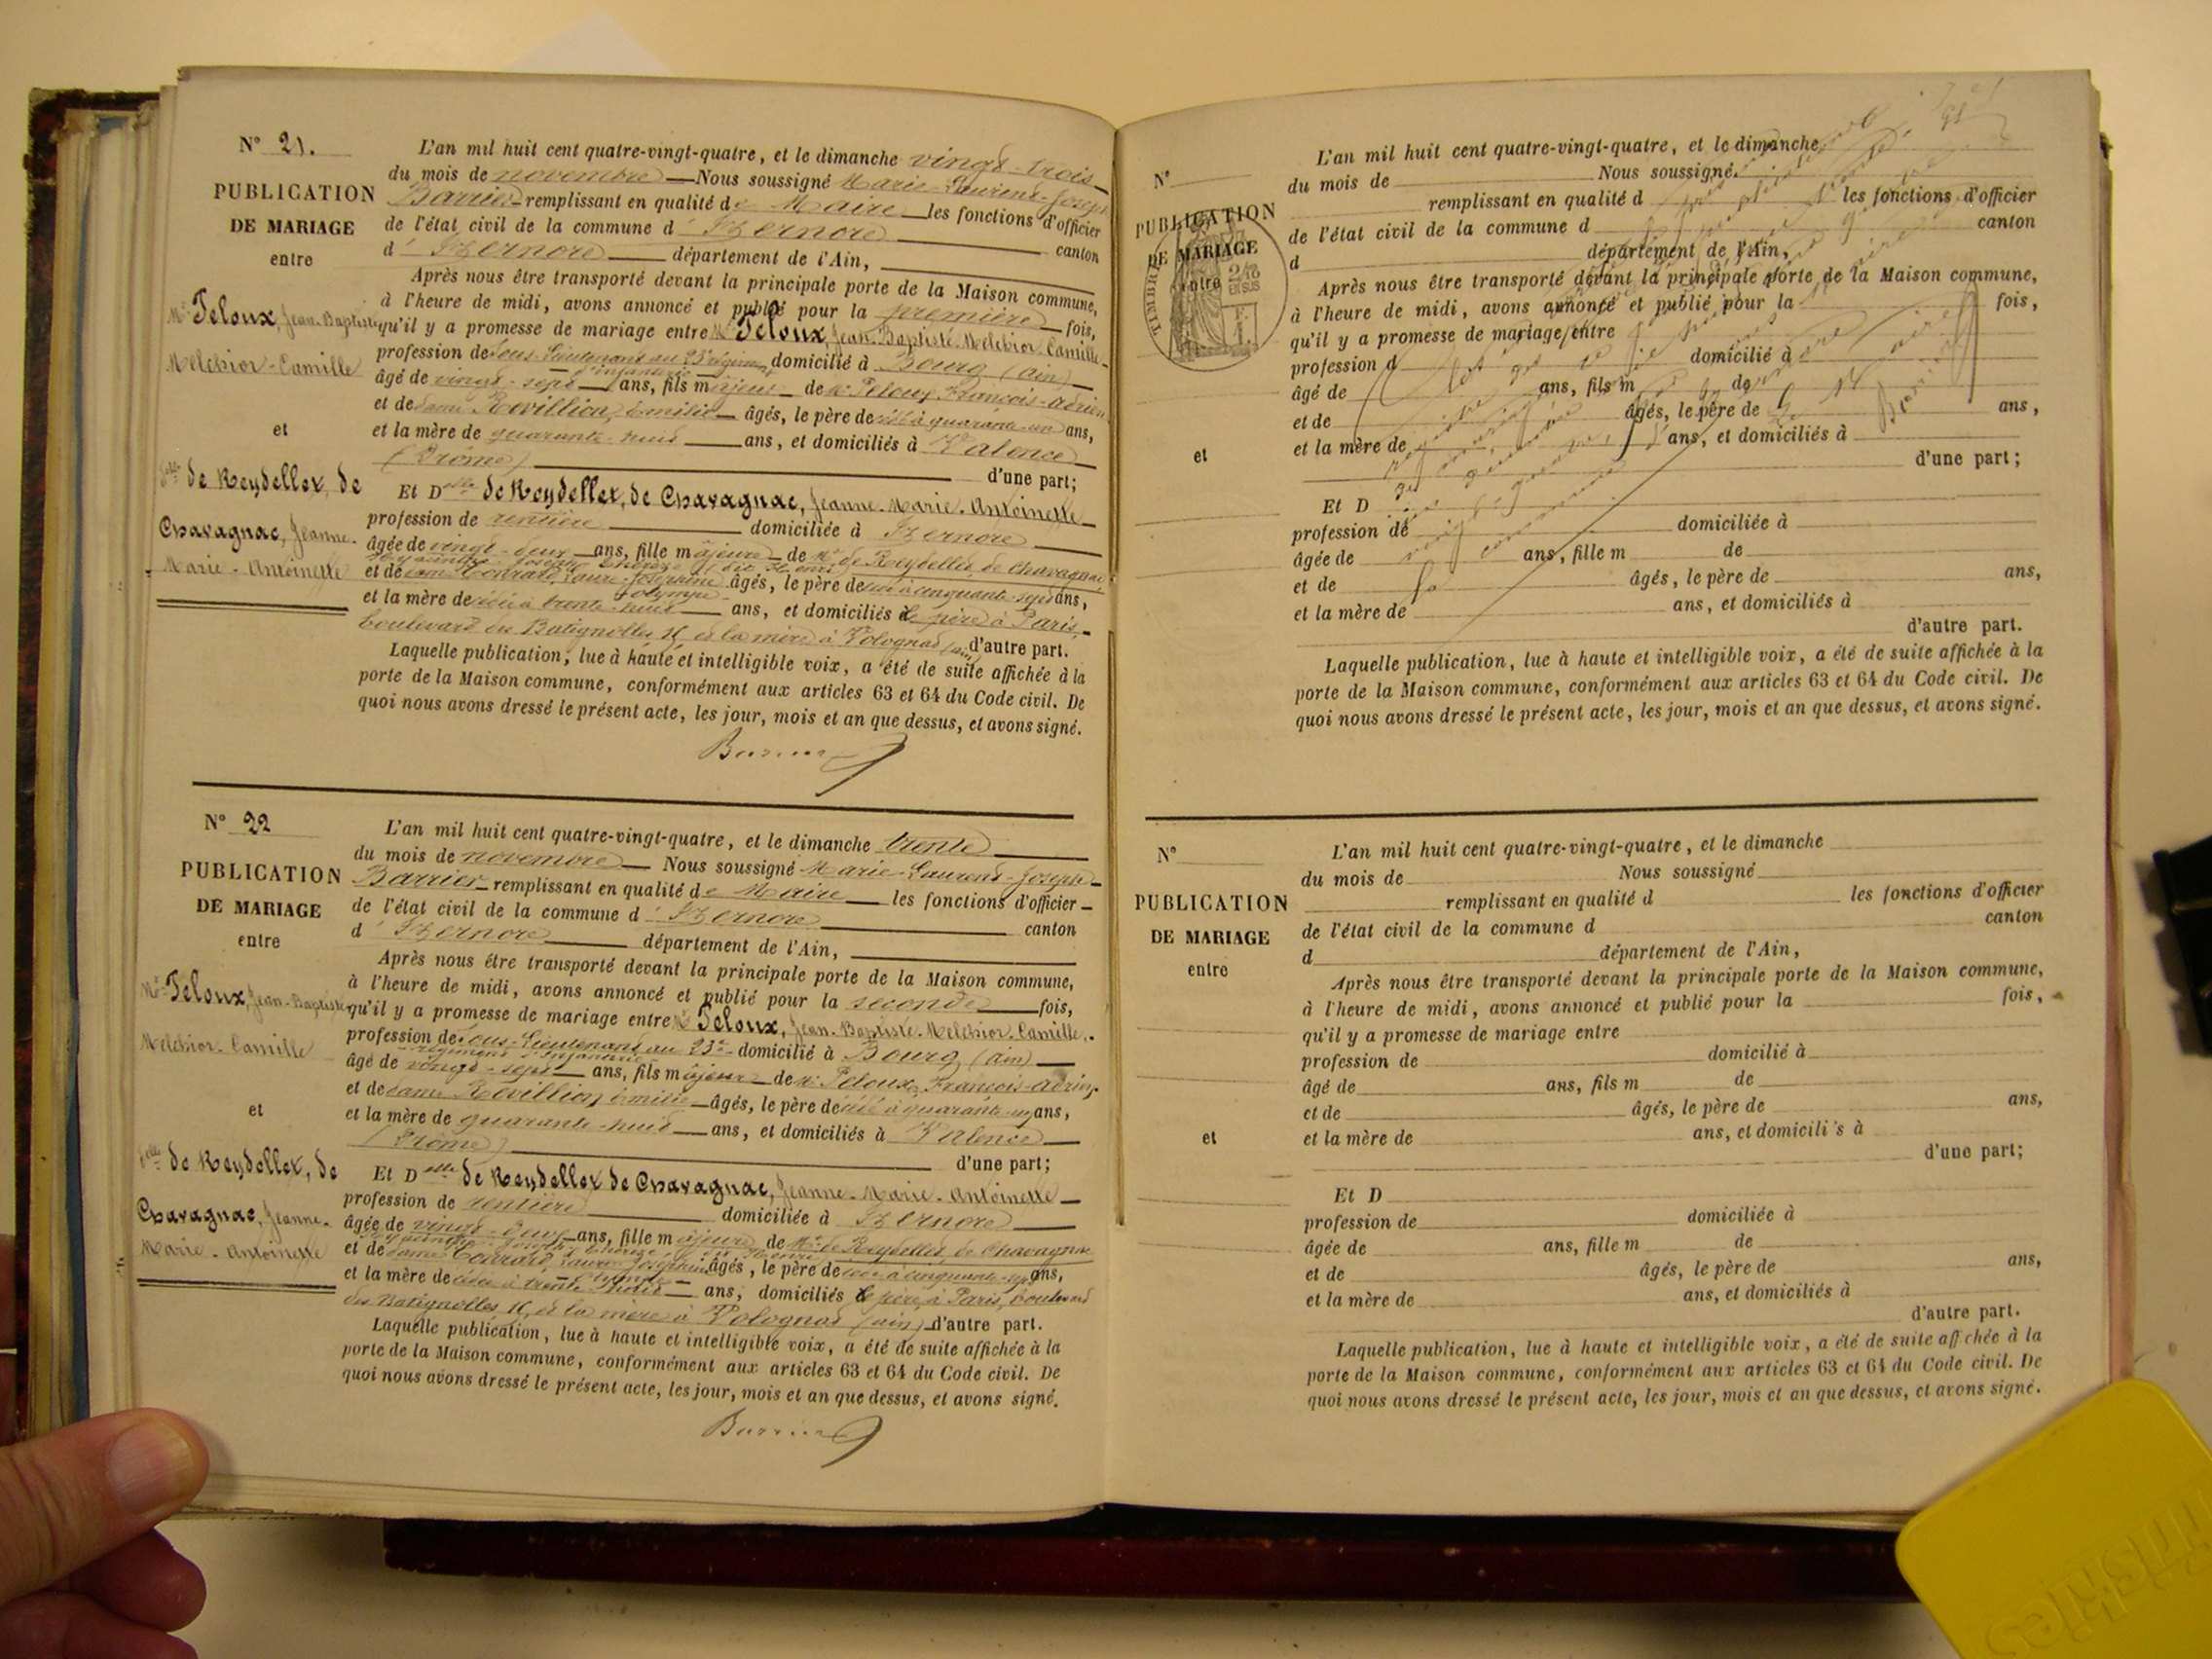 N° 21.
PUBLICATION
DE MARIAGE
entre
Mr Peloux, Jean-Baptiste
Melchior-Camille
et
Delle de Reydellet, de
Chavagnac, Jeanne-
Marie-Antoinette
L'an mil huit cent quatre-vingt-quatre, et le dimanche vingt-trois
du mois de novembre Nous soussigné Marie-Laurent-Joseph
Barrier remplissant en qualité de Maire les fonctions d'officier
de l'état civil de la commune d'Izernore canton
d'Izernore département de l'Ain,
Après nous être transporté devant la principale porte de la Maison commune,
à l'heure de midi, avons annoncé et publié pour la première fois,
qu'il y a promesse de mariage entre Mr Peloux, Jean-Baptiste-Melchior-Camille
profession de Sous-Lieutenant au 23e régiment d'infanterie domicilié à Bourg (Ain)
âgé de vingt-sept ans, fils majeur de Mr Peloux François-Adrien
et de dame Revillion, Emilie âgés, le père décédé à quarante-un ans,
et la mère de quarante-huit ans, et domiciliés à Valence
(Drôme) d'une part;
Et Delle de Reydellet, de Chavagnac, Jeanne-Marie-Antoinette
profession de rentière domiciliée à Izernore
âgée de vingt-deux ans, fille majeure de Mr de Reydellet, de Chavagnac
Hyacinthe Joseph Thérèse dit Henri
et de dame Laure-Joséphine Olympe âgés, le père de cinquante-sept ans,
et la mère décédée à trente-huit ans, et domiciliés le père à Paris,
boulevard des Batignolles et la mère à Volognat (Ain) d'autre part.
Laquelle publication, lue à haute et intelligible voix, a été de suite affichée à la
porte de la Maison commune, conformément aux articles 63 et 64 du Code civil. De
quoi nous avons dressé le présent acte, les jour, mois et an que dessus, et avons signé.
Barrier
N° 22
PUBLICATION
DE MARIAGE
entre
Mr Peloux, Jean-Baptiste
Melchior-Camille
et
Delle de Reydellet, de
Chavagnac, Jeanne-
Marie-Antoinette
L'an mil huit cent quatre-vingt-quatre, et le dimanche trente
du mois de novembre Nous soussigné Marie-Laurent-Joseph
Barrier remplissant en qualité de Maire les fonctions d'officier
de l'état civil de la commune d'Izernore canton
d'Izernore département de l'Ain,
Après nous être transporté devant la principale porte de la Maison commune,
à l'heure de midi, avons annoncé et publié pour la seconde fois,
qu'il y a promesse de mariage entre Mr Peloux, Jean-Baptiste-Melchior-Camille
profession de Sous-Lieutenant au 23e régiment d'infanterie domicilié à Bourg (Ain)
âgé de vingt-sept ans, fils majeur de Mr Peloux, François-Adrien
et de dame Revillion, Emilie âgés, le père décédé à quarante-un ans,
et la mère de quarante-huit ans, et domiciliés à Valence
(Drôme) d'une part;
Et Delle de Reydellet de Chavagnac, Jeanne-Marie-Antoinette
profession de rentière domiciliée à Izernore
âgée de vingt-deux ans, fille majeure de Mr de Reydellet, de Chavagnac
Hyacinthe Joseph Thérèse dit Henri
et de dame Laure Joséphine Olympe âgés, le père de cinquante-sept ans,
et la mère décédée à trente-huit ans, domiciliés le père à Paris, boulevard
des Batignolles et la mère à Volognat (Ain) d'autre part.
Laquelle publication, lue à haute et intelligible voix, a été de suite affichée à la
porte de la Maison commune, conformément aux articles 63 et 64 du Code civil. De
quoi nous avons dressé le présent acte, les jour, mois et an que dessus, et avons signé.
Barrier
N°
PUBLICATION
DE MARIAGE
entre
TIMBRE
et
L'an mil huit cent quatre-vingt-quatre, et le dimanche
du mois de Nous soussigné
remplissant en qualité d les fonctions d'officier
de l'état civil de la commune d canton
d département de l'Ain,
Après nous être transporté devant la principale porte de la Maison commune,
à l'heure de midi, avons annoncé et publié pour la fois,
qu'il y a promesse de mariage entre
profession d domicilié à
âgé de ans, fils m de
et de âgés, le père de ans,
et la mère de ans, et domiciliés à
d'une part;
Et D
profession de domiciliée à
âgée de ans, fille m de
et de âgés, le père de ans,
et la mère de ans, et domiciliés à
d'autre part.
Laquelle publication, lue à haute et intelligible voix, a été de suite affichée à la
porte de la Maison commune, conformément aux articles 63 et 64 du Code civil. De
quoi nous avons dressé le présent acte, les jour, mois et an que dessus, et avons signé.
N°
PUBLICATION
DE MARIAGE
entre
et
L'an mil huit cent quatre-vingt-quatre, et le dimanche
du mois de Nous soussigné
remplissant en qualité d les fonctions d'officier
de l'état civil de la commune d canton
d département de l'Ain,
Après nous être transporté devant la principale porte de la Maison commune,
à l'heure de midi, avons annoncé et publié pour la fois,
qu'il y a promesse de mariage entre
profession de domicilié à
âgé de ans, fils m de
et de âgés, le père de ans,
et la mère de ans, et domicili s à
d'une part;
Et D
profession de domiciliée à
âgée de ans, fille m de
et de âgés, le père de ans,
et la mère de ans, et domiciliés à
d'autre part.
Laquelle publication, lue à haute et intelligible voix, a été de suite aff chée à la
porte de la Maison commune, conformément aux articles 63 et 64 du Code civil. De
quoi nous avons dressé le présent acte, les jour, mois et an que dessus, et avons signé.